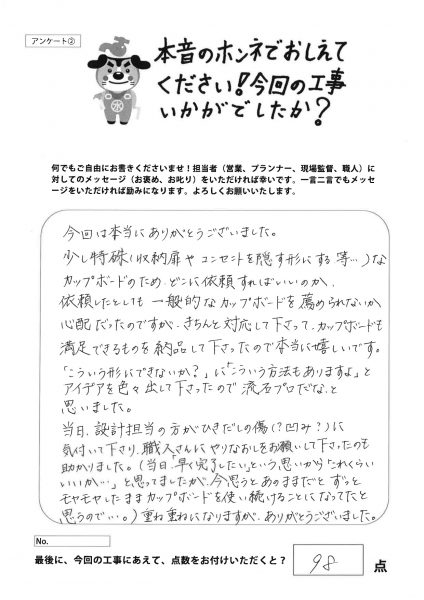 アンケート②
本音のホンネでおしえて
ください!今回の工事
いかがでしたか?
何でもご自由にお書きくださいませ!担当者(営業、プランナー、現場監督、職人)に
対してのメッセージ(お褒め、お叱り)をいただければ幸いです。一言二言でもメッセ
ージをいただければ励みになります。よろしくお願いいたします。
今回は本当にありがとうございました。
少し特殊(収納扉やコンセントを隠す形にする等…)な
カップボードのため、どこに依頼すればいいのか、
依頼したとしても一般的なカップボードを薦められないか
心配だったのですが、きちんと対応して下さって、カップボードも
満足できるものを納品して下さったので本当に嬉しいです。
「こういう形にできないか?」に「こういう方法もありますよ」と
アイデアを色々出して下さったので流石プロだな、と
思いました。
当日、設計担当の方がひきだしの傷(?凹み?)に
気付いて下さり、職人さんにやりなおしをお願いして下さったのも
助かりました。(当日「早く完了したい」という思いから「これくらい
いいか…」と思ってましたが、今思うとあのままだとずっと
モヤモヤしたままカップボードを使い続けることになってたと
思うので…。)重ね重ねになりますが、ありがとうございました。
No.
最後に、今回の工事にあえて、点数をお付けいただくと? 98 点